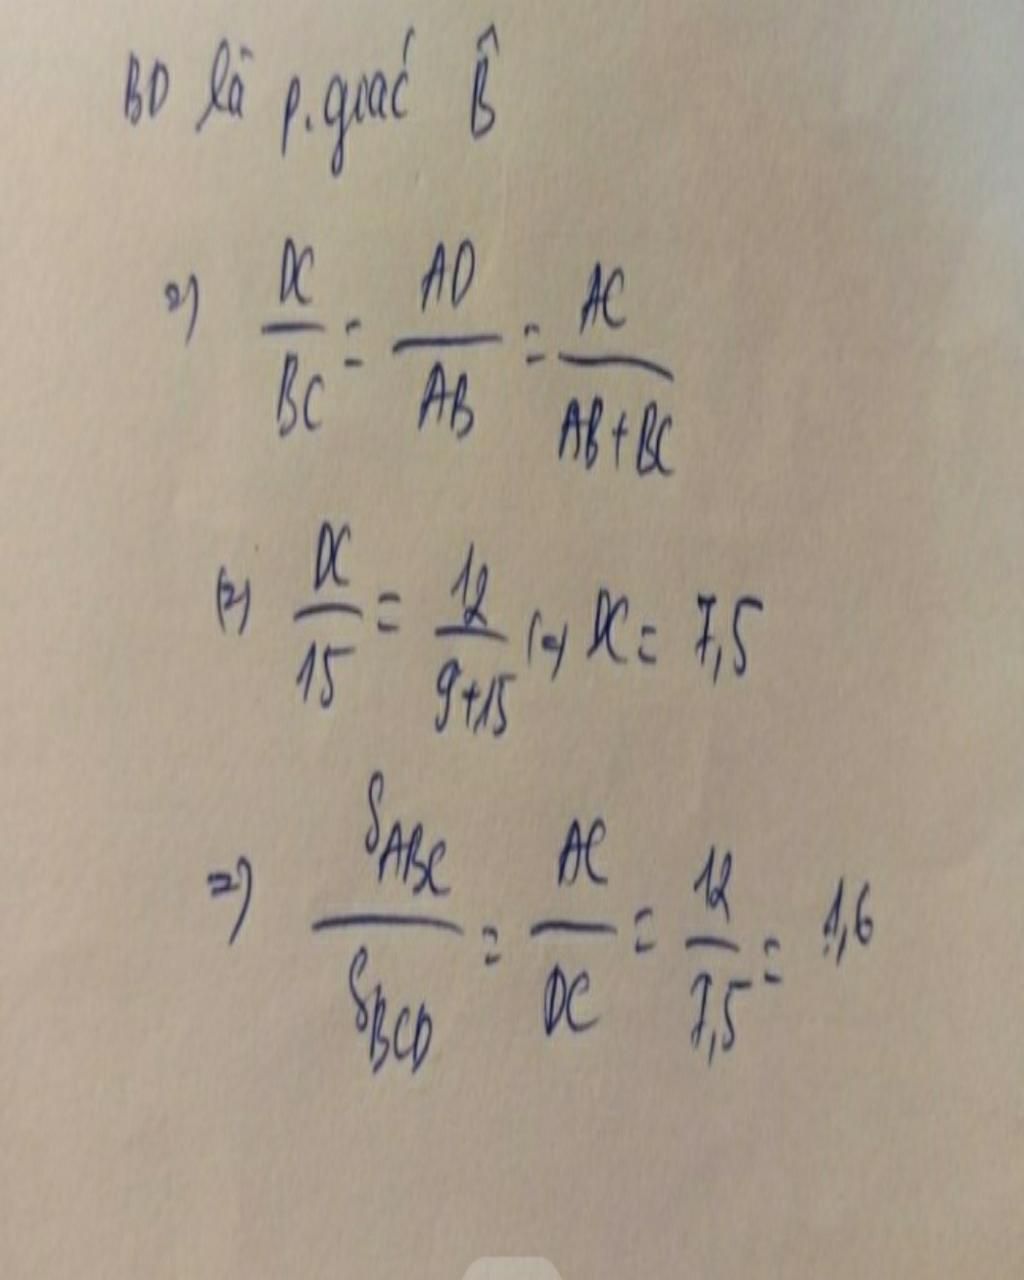 BD là p.giác B̂
=) DC/BC = AD/AB = AC/AB+BC
(=) DC/15 = 12/9+15 (=) DC = 7,5
=) SABC/SBCD = AC/DC = 12/7,5 = 1,6